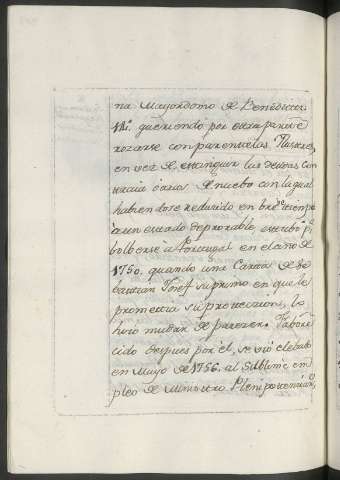 na Mayordomo de Benedicto
XIII. queriendo por otra parte e
rozarse con parentelas Ilustres,
en vez de extinguir las deudas con
trahia otras de nuebo con la qual
habiendose reducido en brebe tiempo
à un estado deplorable, estubo pª
bolberse à Portugal en el año de
1750. quando una Carta de Se
bastian Josef su primo en que le
prometia su proteccion, lo
hizo mudar de parecer. Fabore
cido despues por el, se vió elebado
en Mayo de 1756. al Sublime em
pleo de Ministro Plenipotenciarº